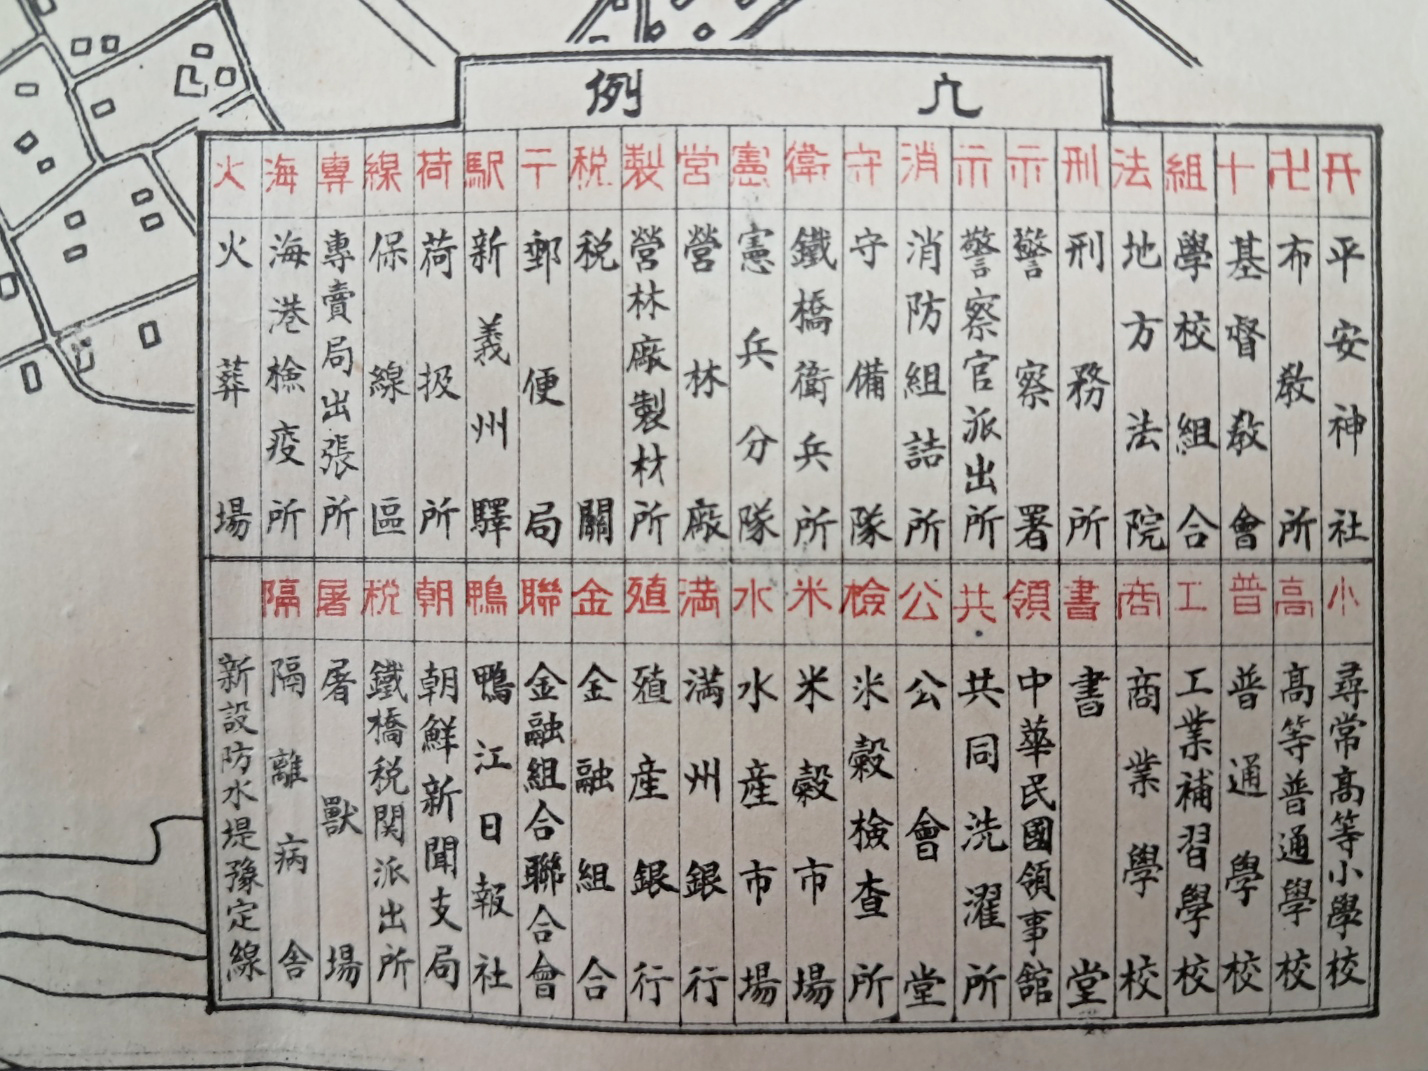 凡例
开 平安神社
卍 布教所
十 基督教會
組 學校組合
法 地方法院
刑 刑務所
警察署
警察官派出所
消 消防組詰所
守 守備隊
衛 鐵橋衛兵所
憲 憲兵分隊
営 營林廠
製 營林廠製材所
税 税關
〒 郵便局
駅 新義州驛
荷 荷扱所
線 保線區
專 專賣局出張所
海 海港検疫所
火 火葬場
小 尋常高等小學校
高 高等普通學校
普 普通學校
工 工業補習學校
商 商業學校
書 書堂
領 中華民國領事館
共 共同洗濯所
公 公會堂
検 米穀検査所
米 米穀市場
水 水産市場
満 満州銀行
殖 殖産銀行
金 金融組合
聯 金融組合聯合會
鴨 鴨江日報社
朝 朝鮮新聞支局
税 鐵橋税関派出所
屠 屠獸場
隔 隔離病舎
新設防水堤豫定線